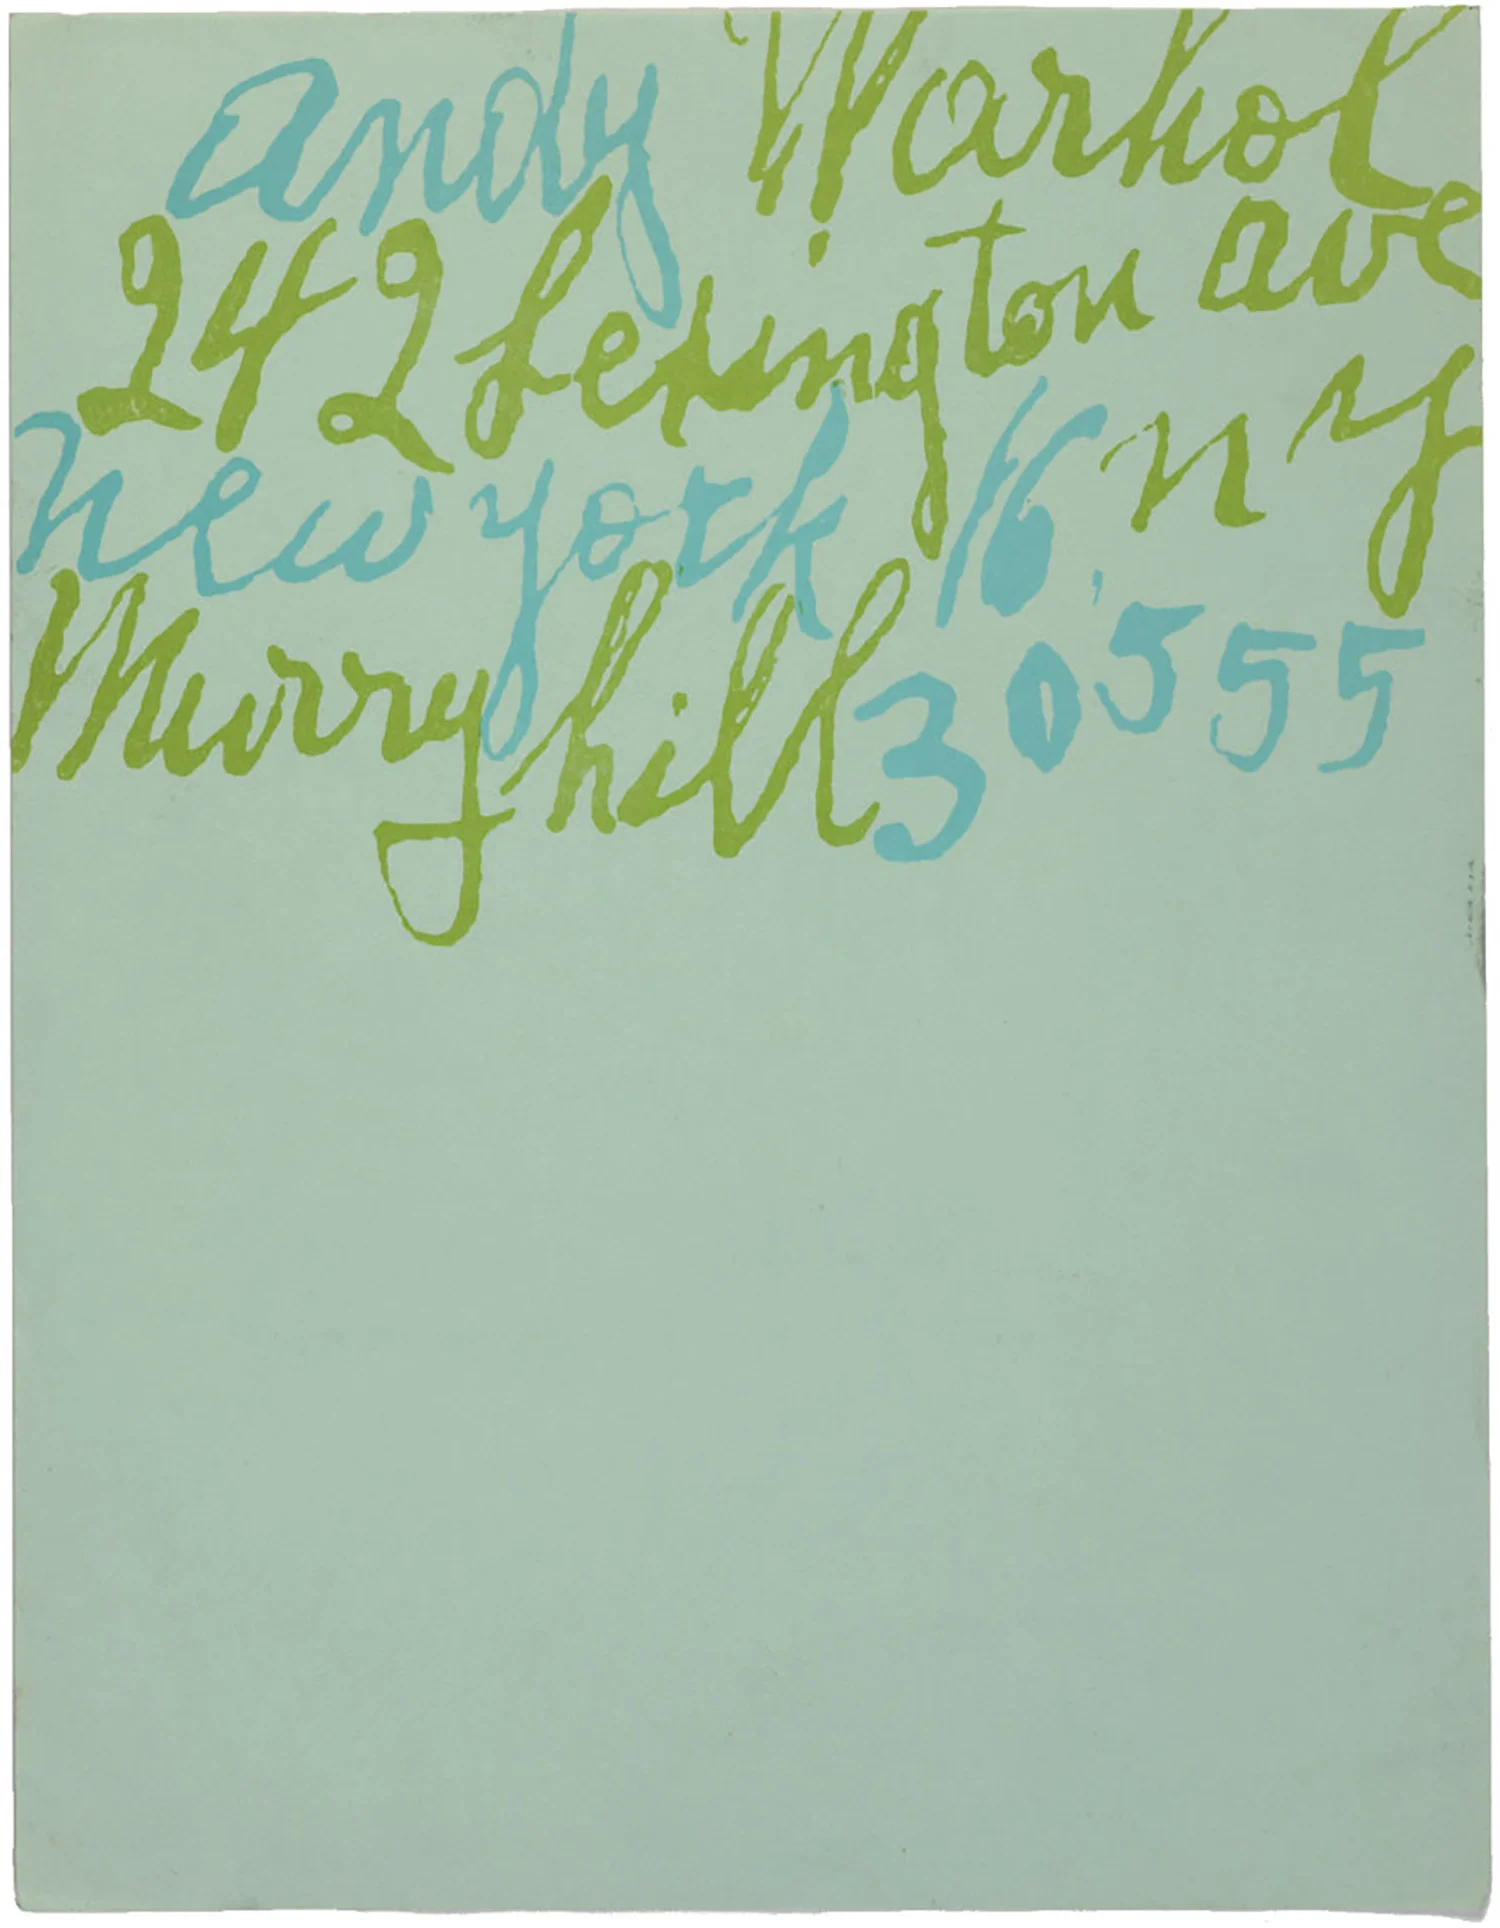 andy Warhol
242 Lexington ave
new york 16, n y
Murry hill 3 0555